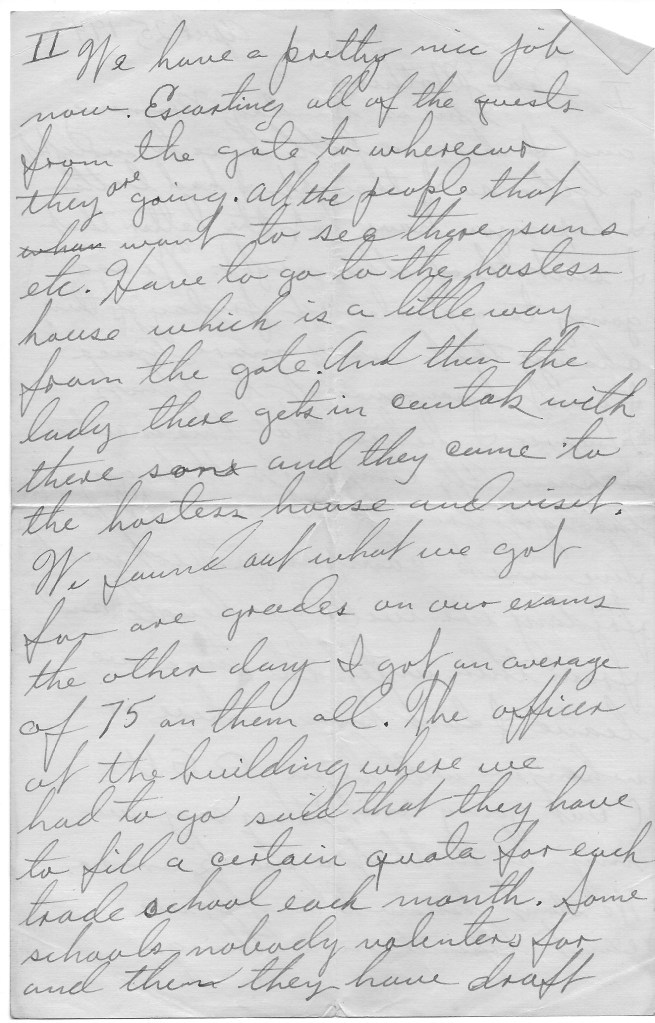 II We have a pretty nic job
now. Escorting all of the quests
from the gate to whereever
they are going. All the people that
whan want to see there suns
etc. Have to go to the hostess
house which is a little way
from the gate. And then the
lady there gets in contak with
there sons and they come to
the hostess house and visit.
We found out what we got
for are grades on our exams
the other day I got an average
of 75 on them all. The officer
at the building where we
had to go said that they have
to fill a certain quota for each
trade school each month. Some
schools nobody volenters for
and then they have draft